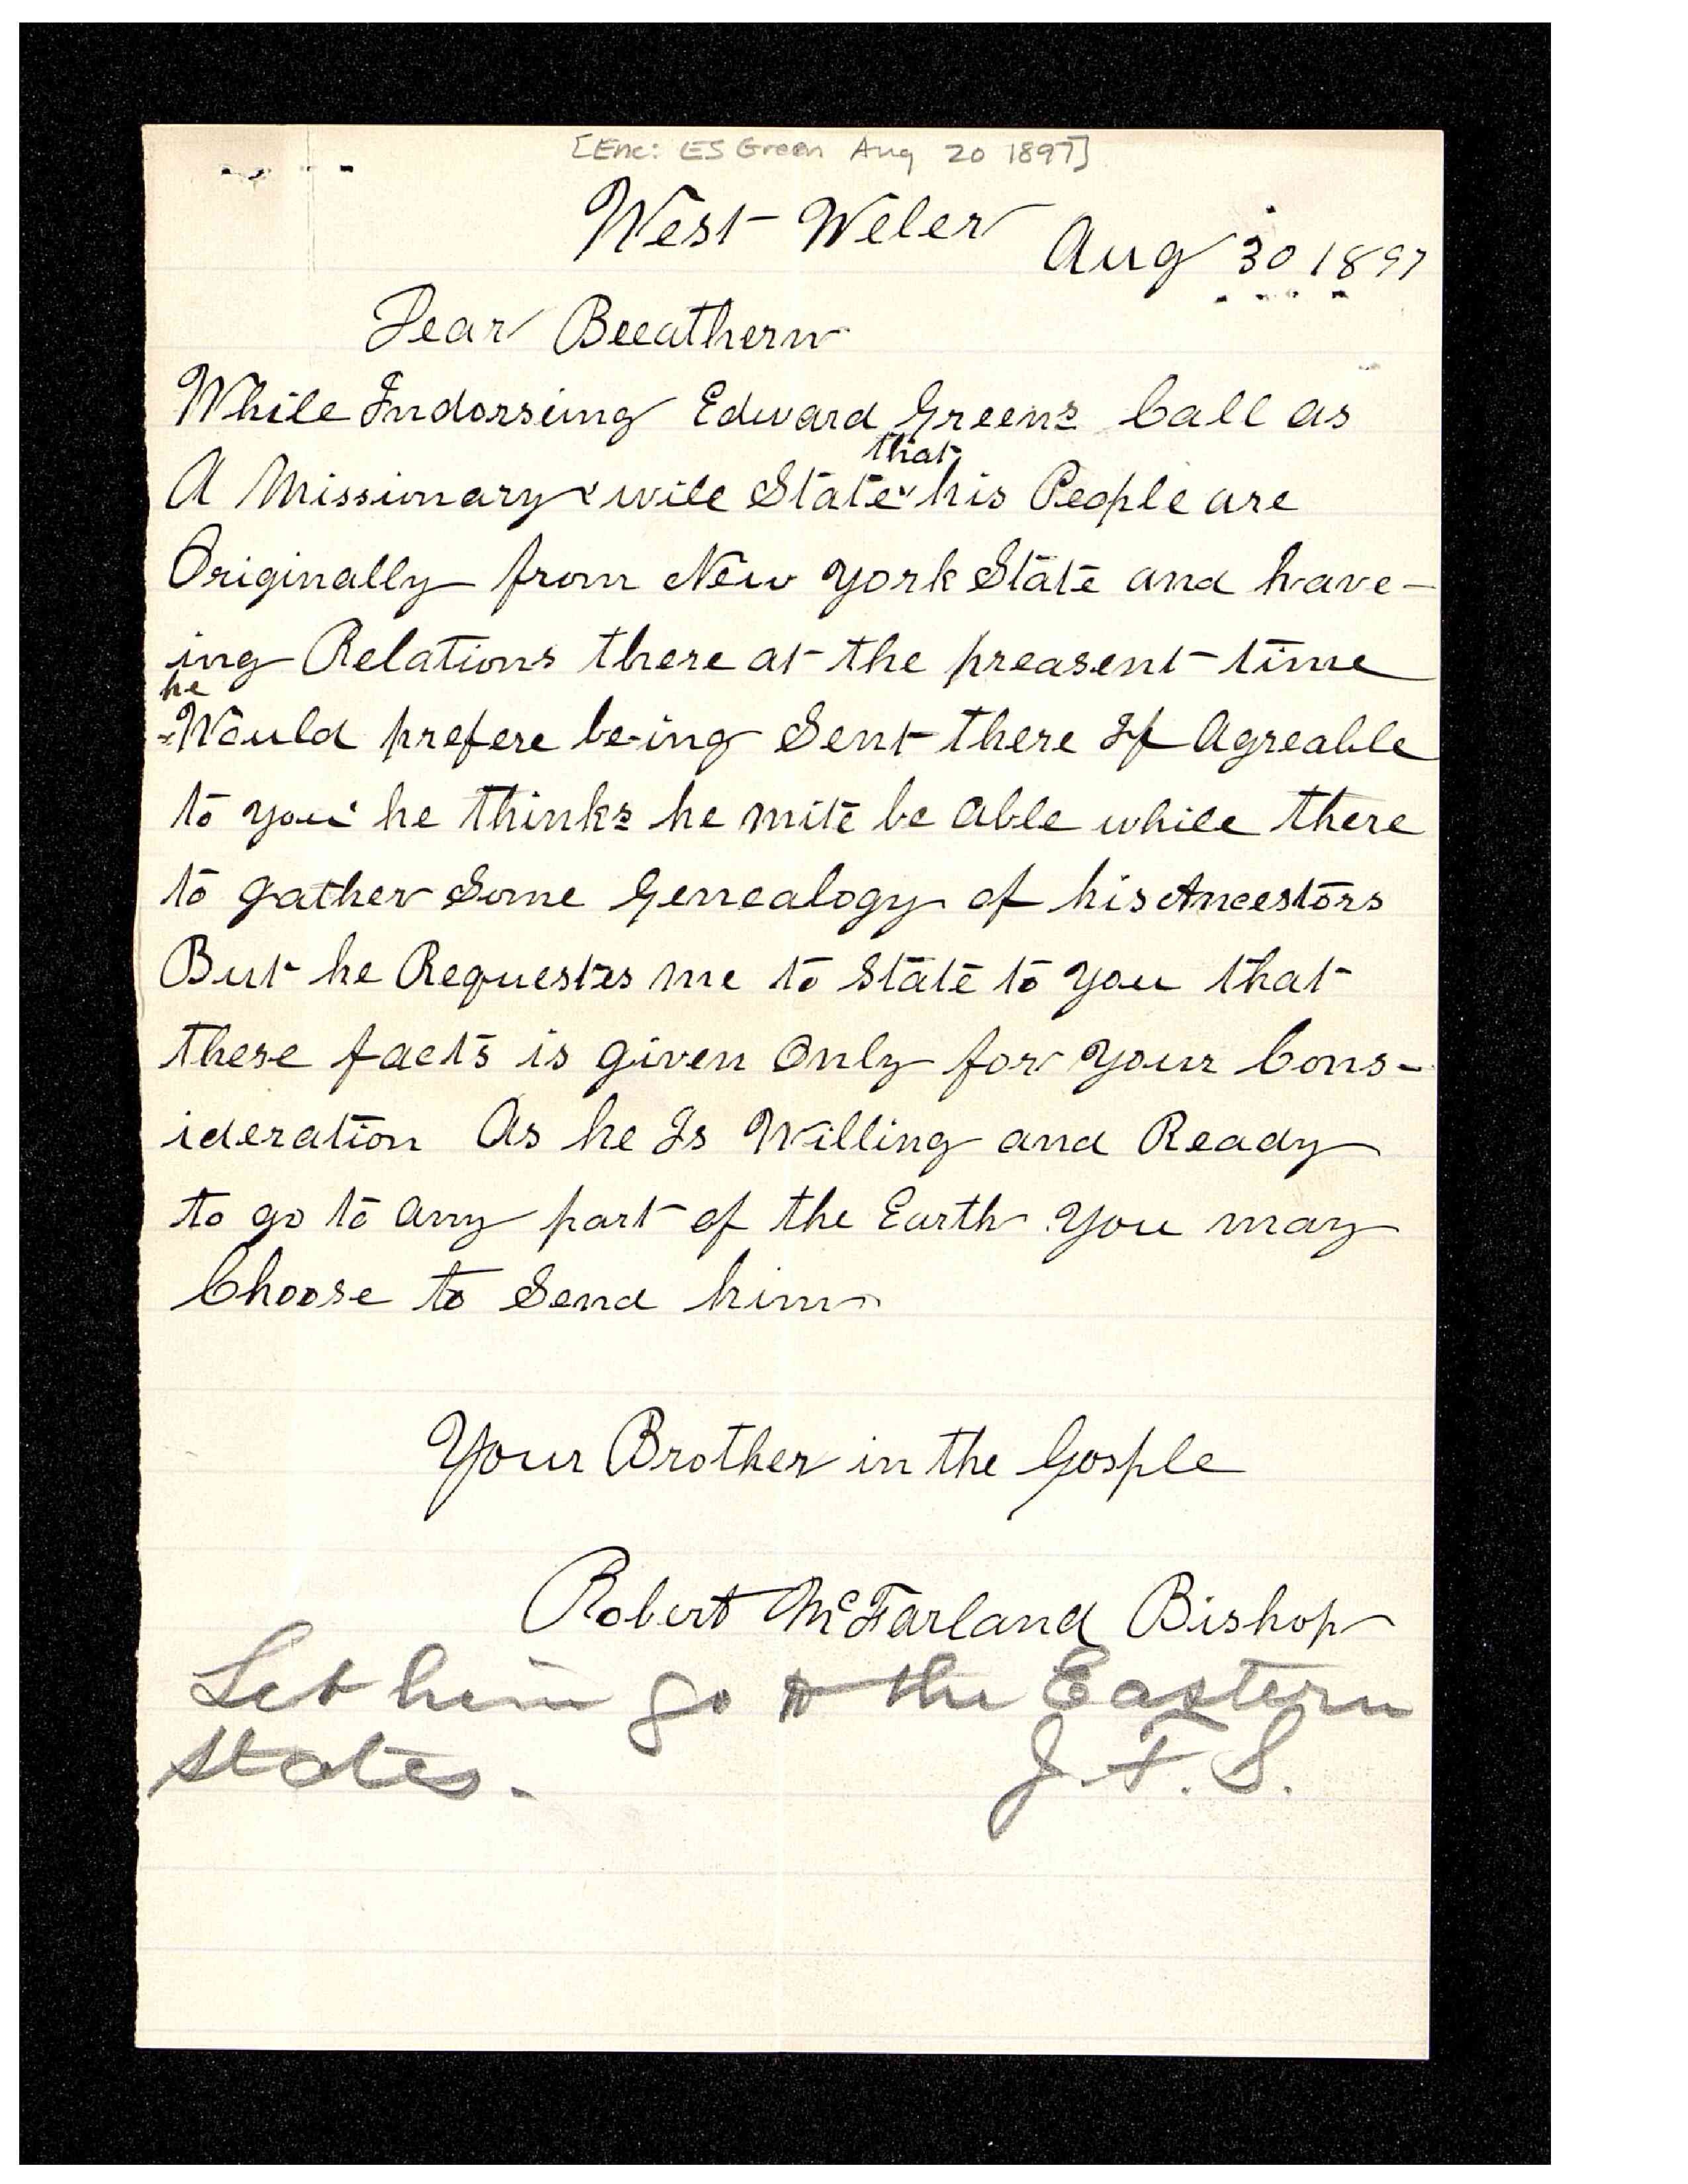 [Enc: ES Green Aug 20 1897]
West Weler Aug 30 1897
Dear Breathern
While Indorseing Edward Greens Call as
that
A Missionary wile State his People are
Originally from New York State and have-
ing Relations there at the preasent time
he
Would prefere being Sent there If Agreable
to you he thinks he mite be able while there
to gather Some Genealogy of his Ancestors
But he Requests me to State to you that
these facts is given Only for your Cons-
ideration As he Is Willing and Ready
to go to any part of the Earth you may
Choose to Send him
Your Brother in the Gosple
Robert McFarland Bishop
Let him go to the Eastern
States.
J. F. S.